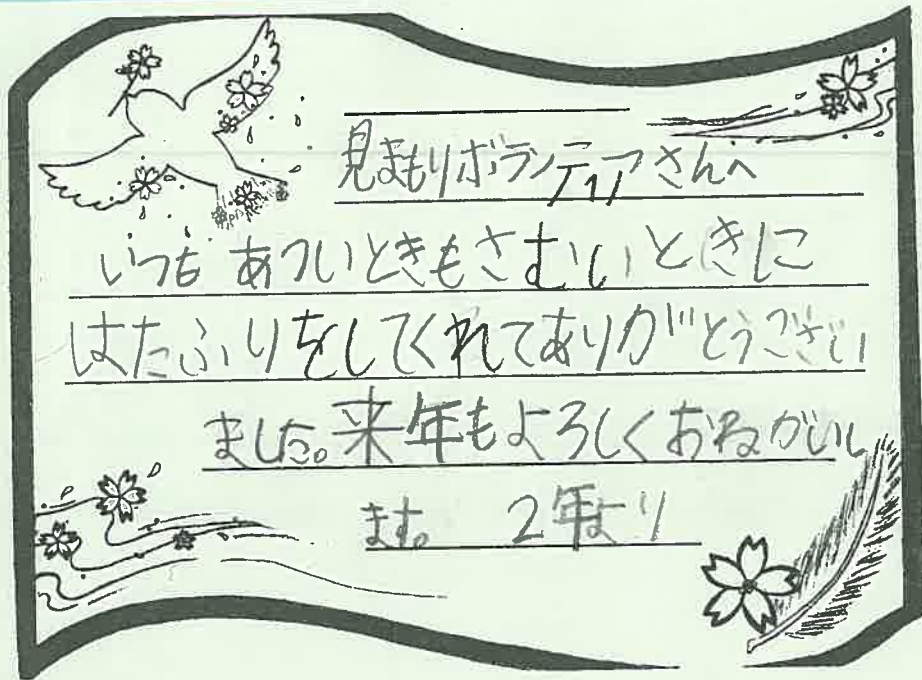 見まもりボランティアさんへ
いつも あついときもさむいときに
はたふりをしてくれてありがとうござい
ました。来年もよろしくおねがいし
ます。 2年より